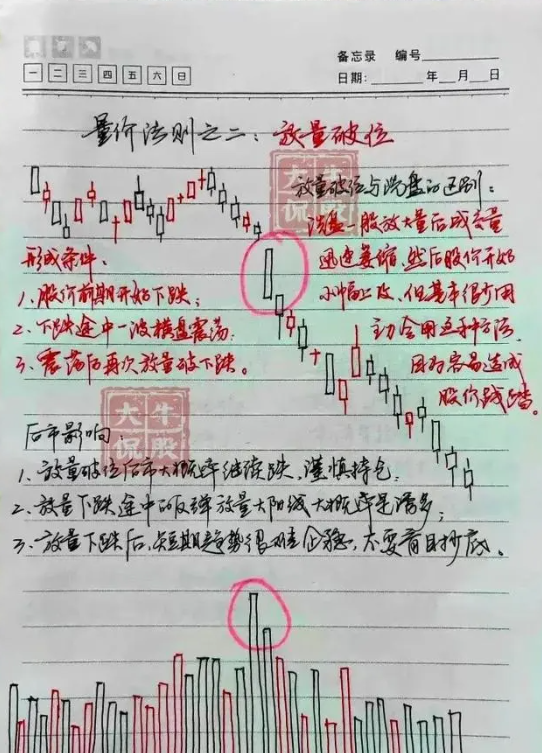 备忘录 编号
一 二 三 四 五 六 日
日期: 年 月 日
量价法则之二：放量破位
大牛侃股
放量破位与洗盘的区别：
洗盘一般放大量后成交量
迅速萎缩、然后股价开始
小幅上攻，但基本很少用
主力会用这种方法，
因为容易造成
股价践踏。
形成条件、
1、股价前期开始下跌；
2、下跌途中一波横盘震荡；
3、震荡后再次放量破下跌。
大牛侃股
后市影响：
1、放量破位后市大概率继续跌，谨慎持仓；
2、放量下跌途中的反弹放量大阳线大概率是诱多；
3、放量下跌后，短期趋势很难企稳，不要盲目抄底。